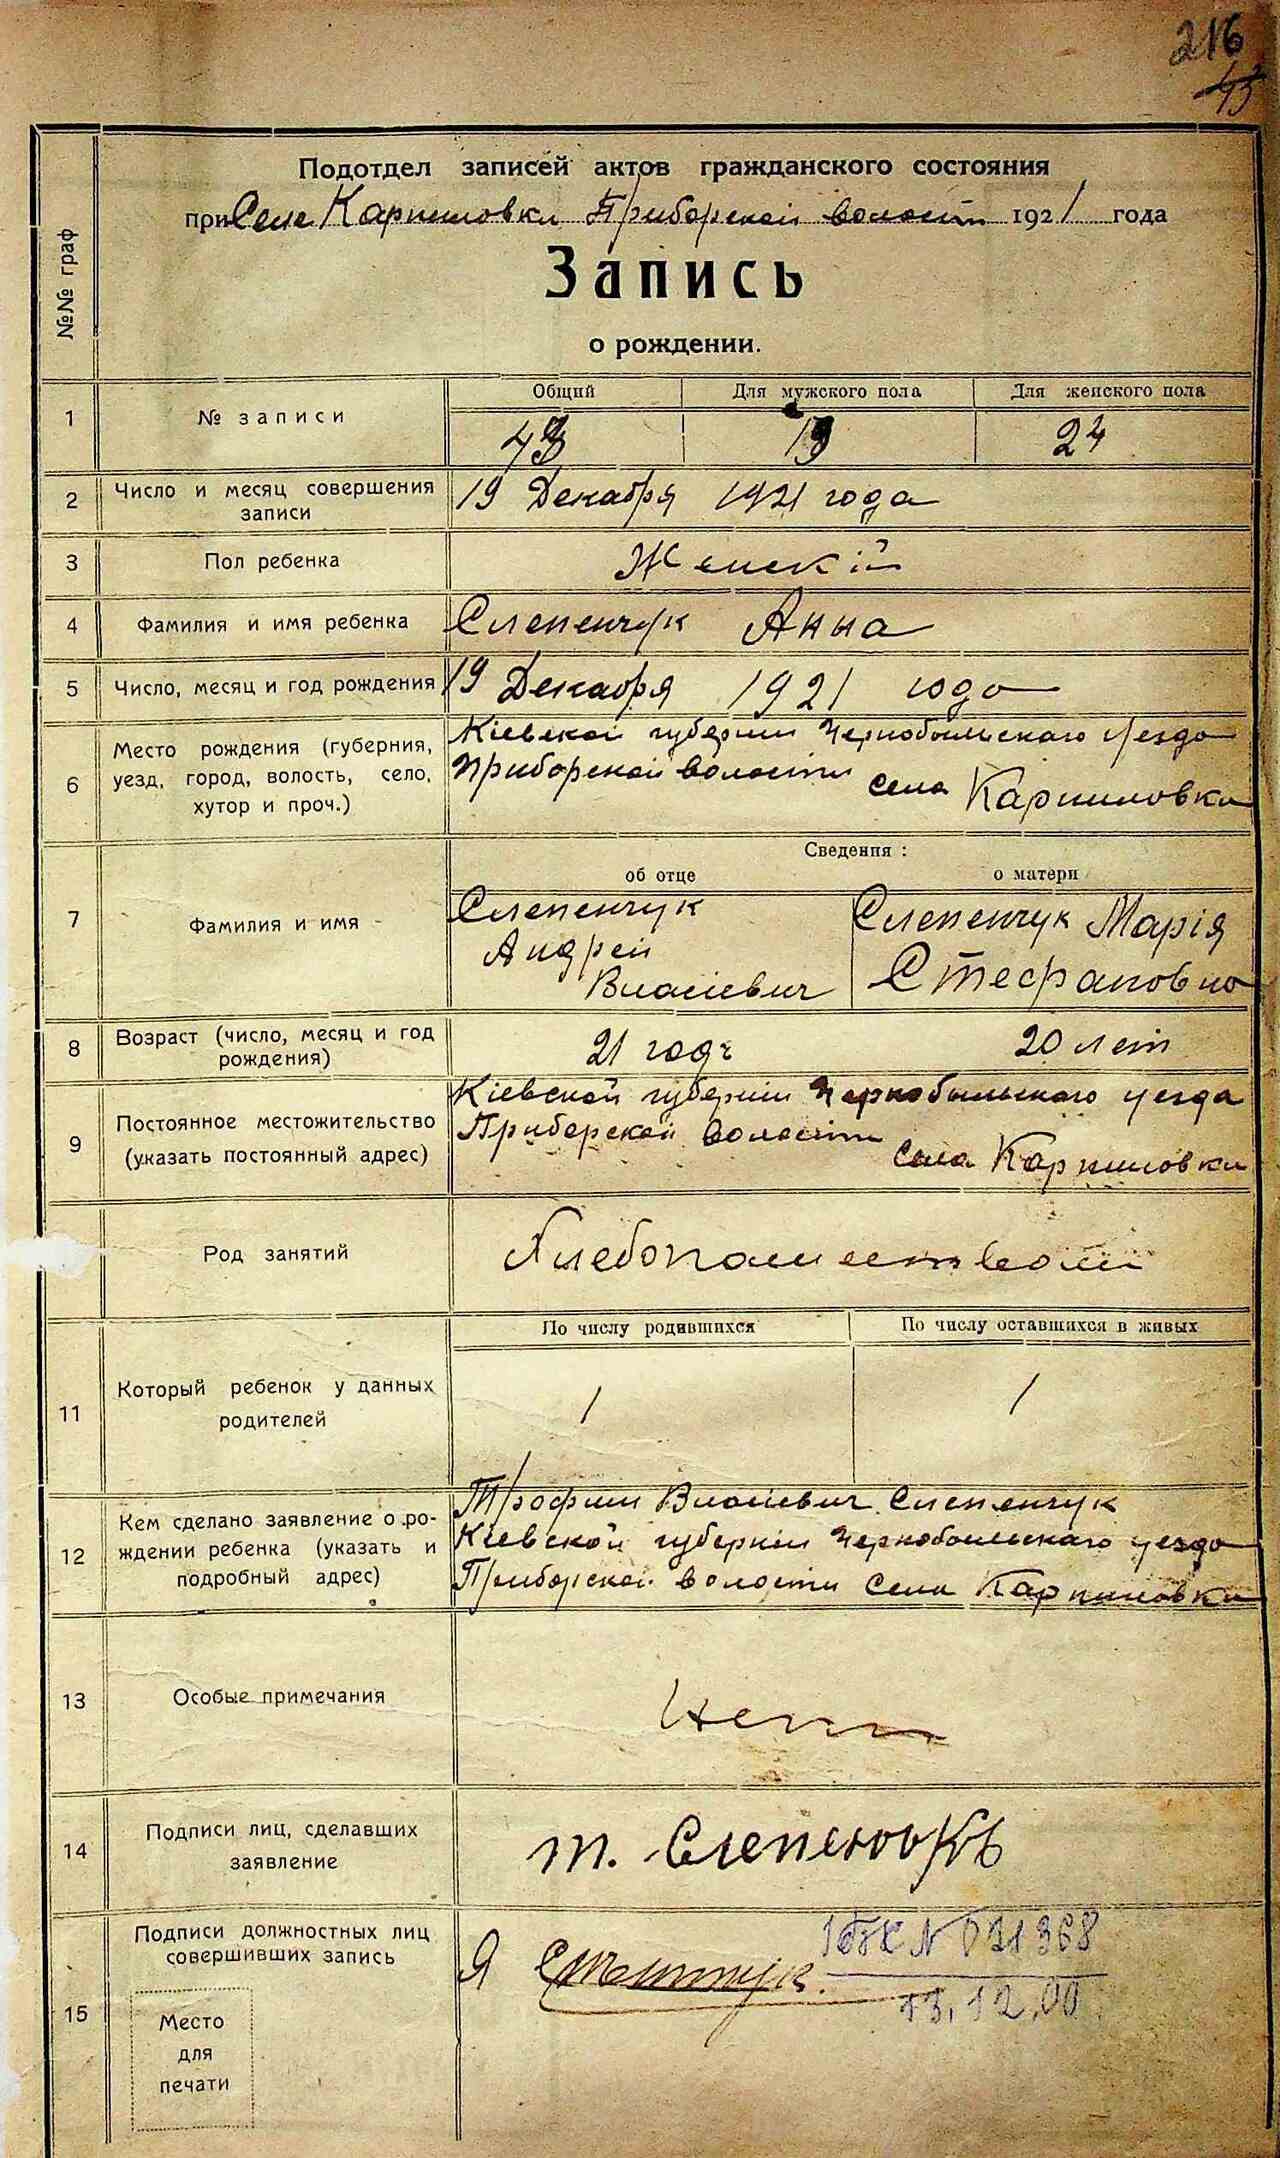 216
43
Подотдел записей актов гражданского состояния
при Селе Карпиловки Приборской волости 1921 года
Запись
о рождении.
№№ граф
Общий Для мужского пола Для женского пола
1 № записи 43 19 24
2 Число и месяц совершения записи 19 Декабря 1921 года
3 Пол ребенка Женскій
4 Фамилия и имя ребенка Слепенчук Анна
5 Число, месяц и год рождения 19 Декабря 1921 года
6 Место рождения (губерния, уезд, город, волость, село, хутор и проч.)
Кіевской губерніи Чернобыльскаго уезда
Приборской волости села Карпиловки
Сведения:
об отце о матери
7 Фамилия и имя
Слепенчук Андрей Власіевич
Слепенчук Марія Стефановна
8 Возраст (число, месяц и год рождения) 21 годъ 20 лет
9 Постоянное местожительство (указать постоянный адрес)
Кіевской губерніи Чернобыльскаго уезда
Приборской волости села Карпиловки
Род занятий Хлебопашеством
По числу родившихся По числу оставшихся в живых
11 Который ребенок у данных родителей 1 1
12 Кем сделано заявление о рождении ребенка (указать и подробный адрес)
Трофим Власіевич Слепенчук
Кіевской губерніи Чернобыльскаго уезда
Приборской волости села Карпиловки
13 Особые примечания Нет
14 Подписи лиц, сделавших заявление Т. Слепенчукъ
15 Подписи должностных лиц совершивших запись
Я
№ 031368
13.12.00
Место
для
печати